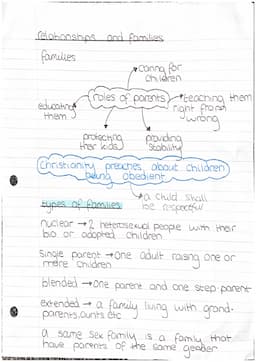 relationships and families
families
caring for
children
roles of parents
educating
them
teaching them
right from
wrong
protecting
their kids
providing
stability
Christianity preaches about children
being obedient
a child shall
be respectful
types of families
nuclear → 2 heterosexual people with their
bio or adopted children
Single parent → one adult raising one or
more children
blended → one parent and one step parent
extended → a family living with grand-
parents, aunts etc
a same sex family is a family that
have parents of the same gender